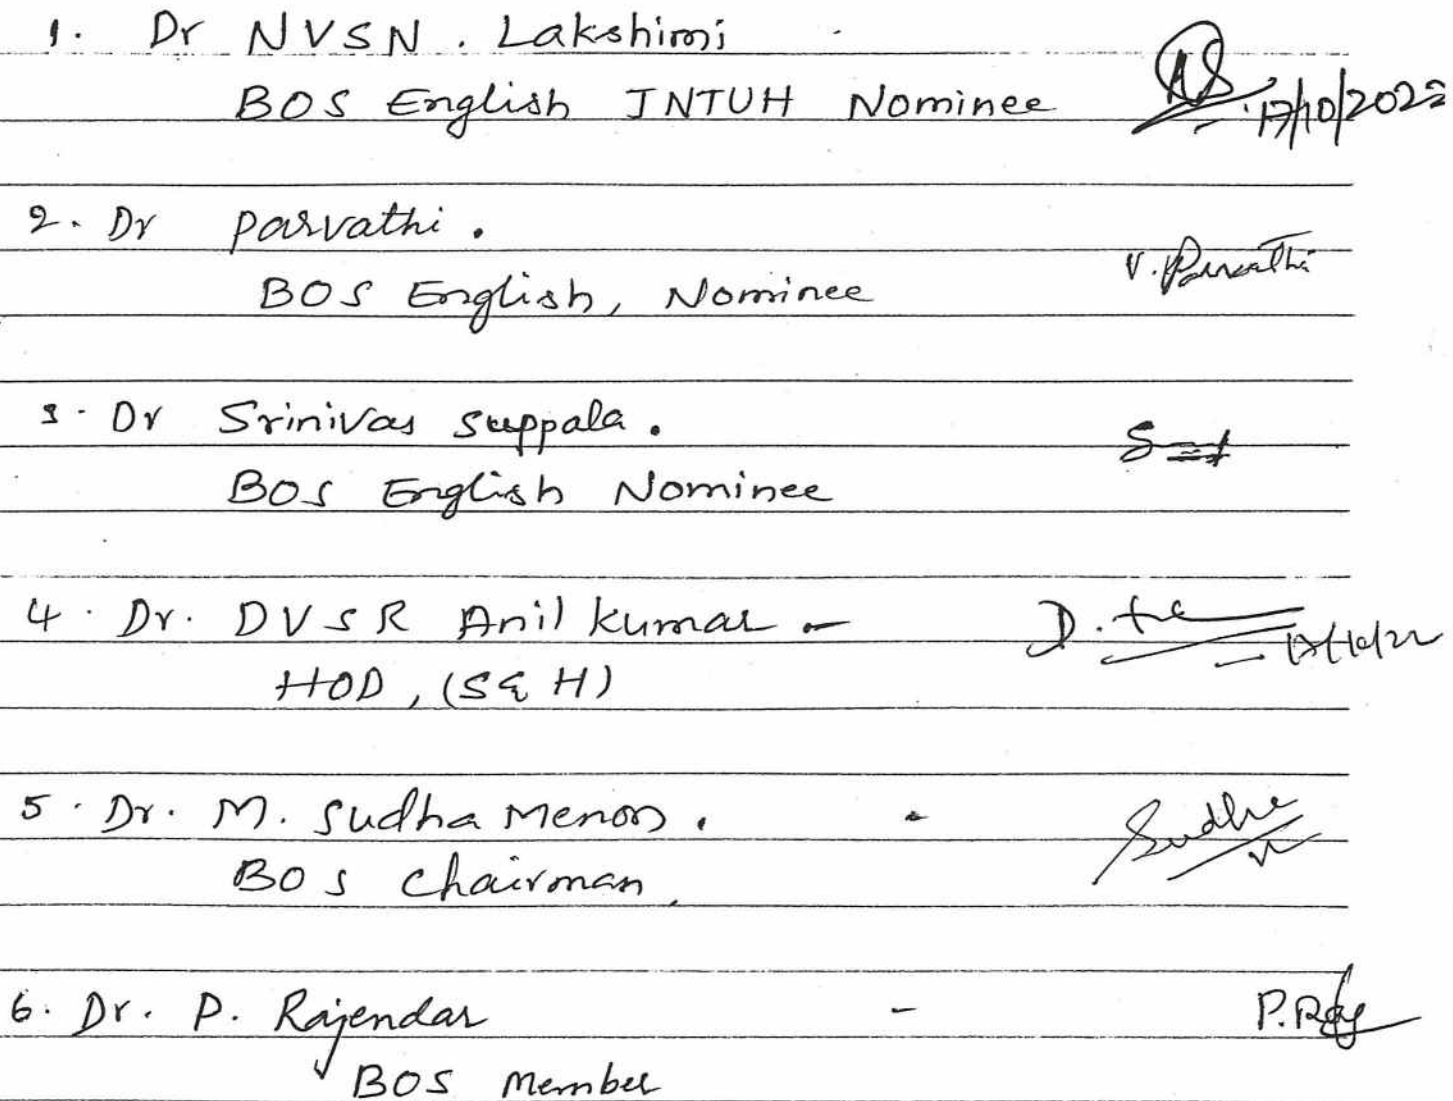 1. Dr NVSN. Lakshimi
BOS English JNTUH Nominee 17/10/2022
2. Dr parvathi.
V. Parvathi
BOS English, Nominee
3. Dr Srinivas Suppala.
BOS English Nominee
4. Dr. DVSR Anil kumar - D.
HOD, (S& H) 17/10/22
5. Dr. M. Sudha Menon. - Sudha
BOS Chairman,
6. Dr. P. Rajendar - P. Raj
BOS Member